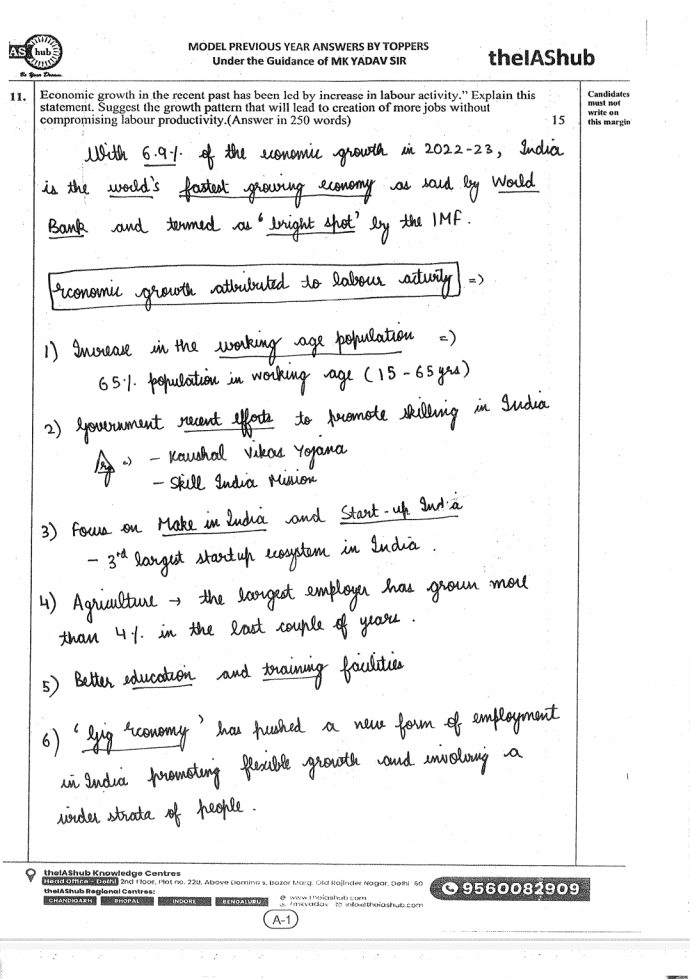 AS hub
Be Your Dream
MODEL PREVIOUS YEAR ANSWERS BY TOPPERS
Under the Guidance of MK YADAV SIR
theIAShub
11. Economic growth in the recent past has been led by increase in labour activity." Explain this
statement. Suggest the growth pattern that will lead to creation of more jobs without
compromising labour productivity.(Answer in 250 words) 15
Candidates
must not
write on
this margin
With 6.9% of the economic growth in 2022-23, India
is the world's fastest growing economy as said by World
Bank and termed as 'bright spot' by the IMF.
Economic growth attributed to labour activity =>
1) Increase in the working age population =>
65% population in working age (15-65 yrs)
2) Government recent efforts to promote skilling in India
Eg => - Kaushal Vikas Yojana
- Skill India Mission
3) Focus on Make in India and Start-up India
- 3rd largest startup ecosystem in India.
4) Agriculture → the largest employer has grown more
than 4% in the last couple of years.
5) Better education and training facilities
6) 'Gig economy' has pushed a new form of employment
in India promoting flexible growth and involving a
wider strata of people.
theIAShub Knowledge Centres
Head Office - Delhi 2nd Floor, Plot no. 22B, Above Domino's, Bazar Marg, Old Rajinder Nagar, Delhi-60
theIAShub Regional Centres:
CHANDIGARH BHOPAL INDORE BENGALURU
www.theiashub.com
/mkyadav info@theiashub.com
9560082909
A-1